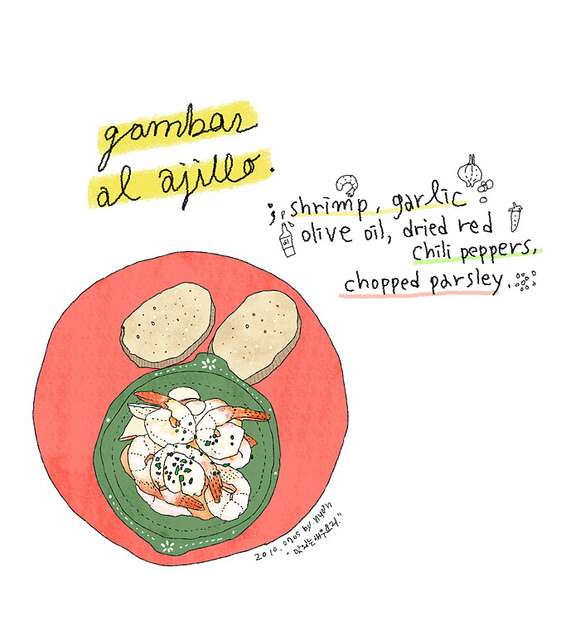 gambas
al ajillo.
shrimp, garlic
olive oil, dried red
chili peppers,
chopped parsley.
2010. 0705 by